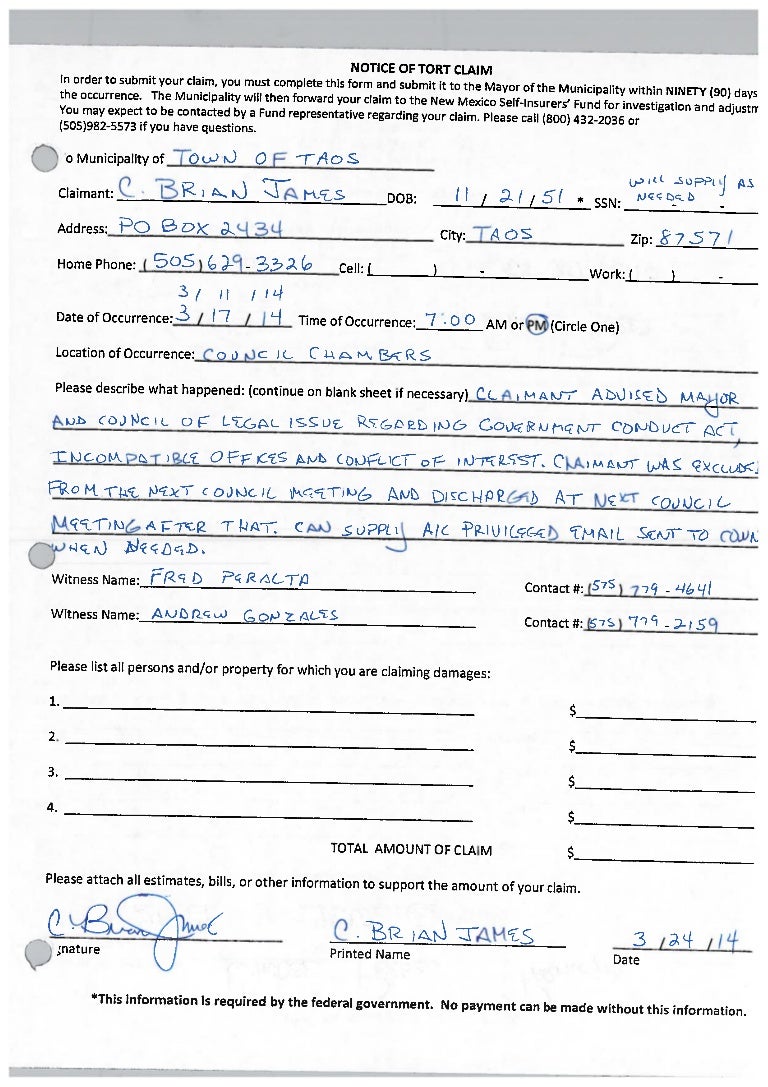 NOTICE OF TORT CLAIM
In order to submit your claim, you must complete this form and submit it to the Mayor of the Municipality within NINETY (90) days
the occurrence. The Municipality will then forward your claim to the New Mexico Self-Insurers' Fund for investigation and adjustm
You may expect to be contacted by a Fund representative regarding your claim. Please call (800) 432-2036 or
(505)982-5573 if you have questions.
o Municipality of TOWN OF TAOS
WILL SUPPLY AS
Claimant: C. BRIAN JAMES DOB: 11 / 21 / 51 * SSN: NEEDED - -
Address: PO BOX 2434 City: TAOS Zip: 87571
Home Phone: (505) 629-3326 Cell: ( ) - Work: ( ) -
3 / 11 / 14
Date of Occurrence: 3 / 17 / 14 Time of Occurrence: 7:00 AM or PM (Circle One)
Location of Occurrence: COUNCIL CHAMBERS
Please describe what happened: (continue on blank sheet if necessary) CLAIMANT ADVISED MAYOR
AND COUNCIL OF LEGAL ISSUE REGARDING GOVERNMENT CONDUCT ACT,
INCOMPATIBLE OFFICES AND CONFLICT OF INTEREST. CLAIMANT WAS EXCLUDE
FROM THE NEXT COUNCIL MEETING AND DISCHARGED AT NEXT COUNCIL
MEETING AFTER THAT. CAN SUPPLY A/C PRIVILEGED EMAIL SENT TO COUN
WHEN NEEDED.
Witness Name: FRED PERALTA Contact #: (575) 779-4641
Witness Name: ANDREW GONZALES Contact #: (575) 779-2159
Please list all persons and/or property for which you are claiming damages:
1. $
2. $
3. $
4. $
TOTAL AMOUNT OF CLAIM $
Please attach all estimates, bills, or other information to support the amount of your claim.
C. Brian James C. BRIAN JAMES 3 / 24 / 14
gnature Printed Name Date
*This information is required by the federal government. No payment can be made without this information.